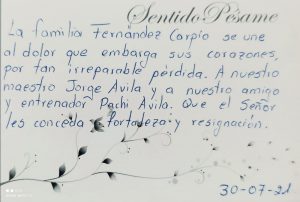 Sentido Pésame
La familia Fernández Carpio se une
al dolor que embarga sus corazones,
por tan irreparable pérdida. A nuestro
maestro Jorge Avila y a nuestro amigo
y entrenador Pachi Avila. Que el Señor
les conceda fortaleza y resignación.
30-07-21